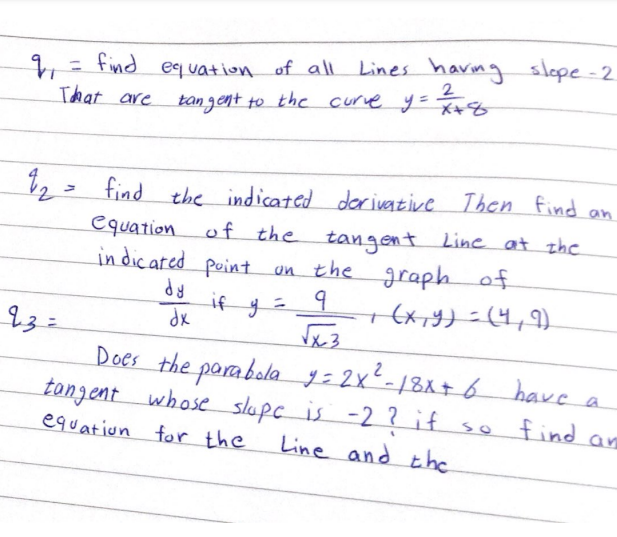 q₁ = find equation of all Lines having slope -2
That are tangent to the curve y = 2/x+8
q₂ = find the indicated derivative Then find an
equation of the tangent Line at the
indicated point on the graph of
dy/dx if y = 9/√x-3 , (x,y) = (4,9)
q3 =
Does the parabola y = 2x² - 18x + 6 have a
tangent whose slope is -2 ? if so find an
equation for the Line and the